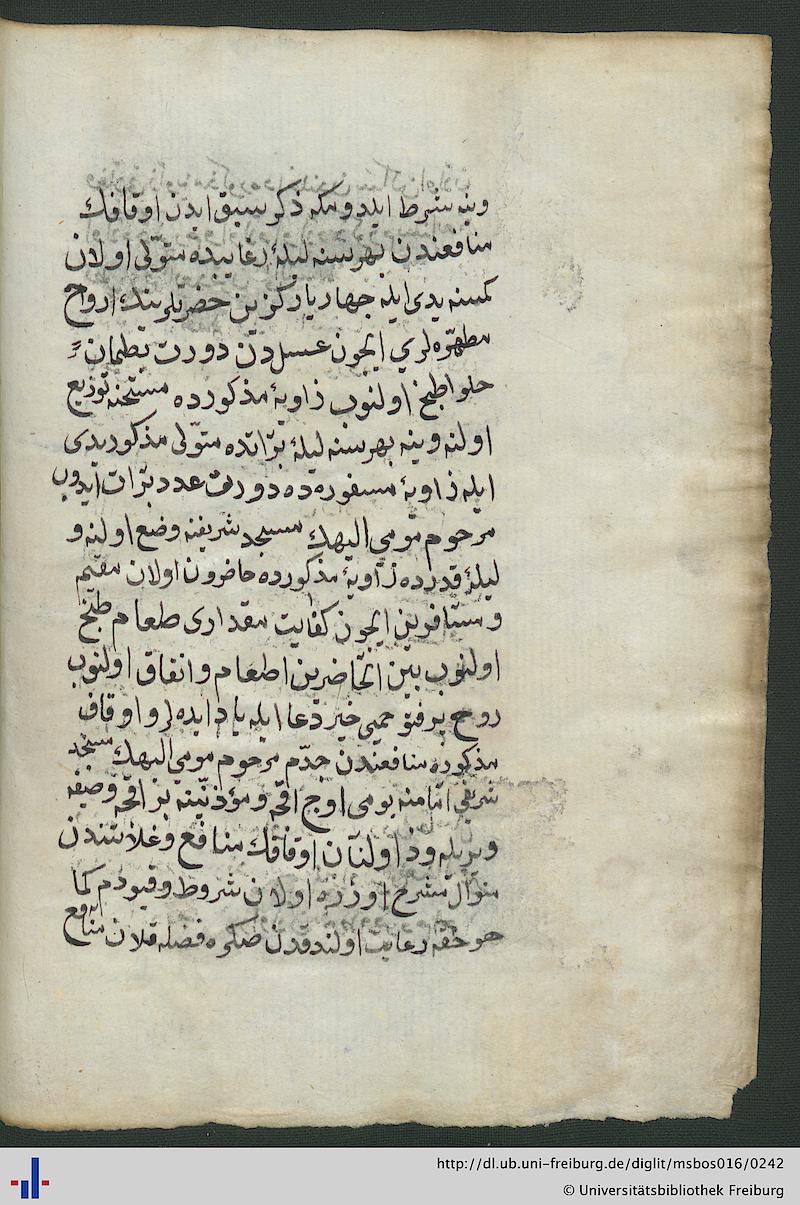 وينه شرط ايلدومكه ذكر سبق ايدن اوقافك
منافعندن بهرسنه ليلهٔ رغايبده متولّى اولان
كمسنه يدى ايله جهار يار كزين حضرتلرينك ارواح
مطهّره لرى ايجون عسلدن دورت بطمان
حلوا طبخ اولنوب زاويهٔ مذكورده مستحقنه توزيع
اولنه وينه بهرسنه ليلهٔ براتده متولّى مذكور يدى
ايله زاويهٔ مسفوره ده دورت عدد برات ايدوب
مرحوم مومى اليهك مسجد شريفنه وضع اولنه و
ليلهٔ قدرده زاويهٔ مذكورده حاضرون اولان مقيم
ومسافرين ايجون كفايت مقدارى طعام طبخ
اولنوب بين الحاضرين اطعام وانفاق اولنوب
روح پرفتوحمى خير دعا ايله ياد ايده لر واوقاف
مذكوره منافعندن جدّم مرحوم مومى اليهك مسجد
شريفى امامنه يومى اوج اقچه ومؤذّنينه بر اقچه وظيفه
ويريله وذكر اولنان اوقافك منافع وغلاتندن
منوال مشرح اوزره اولان شروط وقيودم كما
هو حقّه رعايت اولندقدن صكره فضله قلان منافع
http://dl.ub.uni-freiburg.de/diglit/msbos016/0242
© Universitätsbibliothek Freiburg